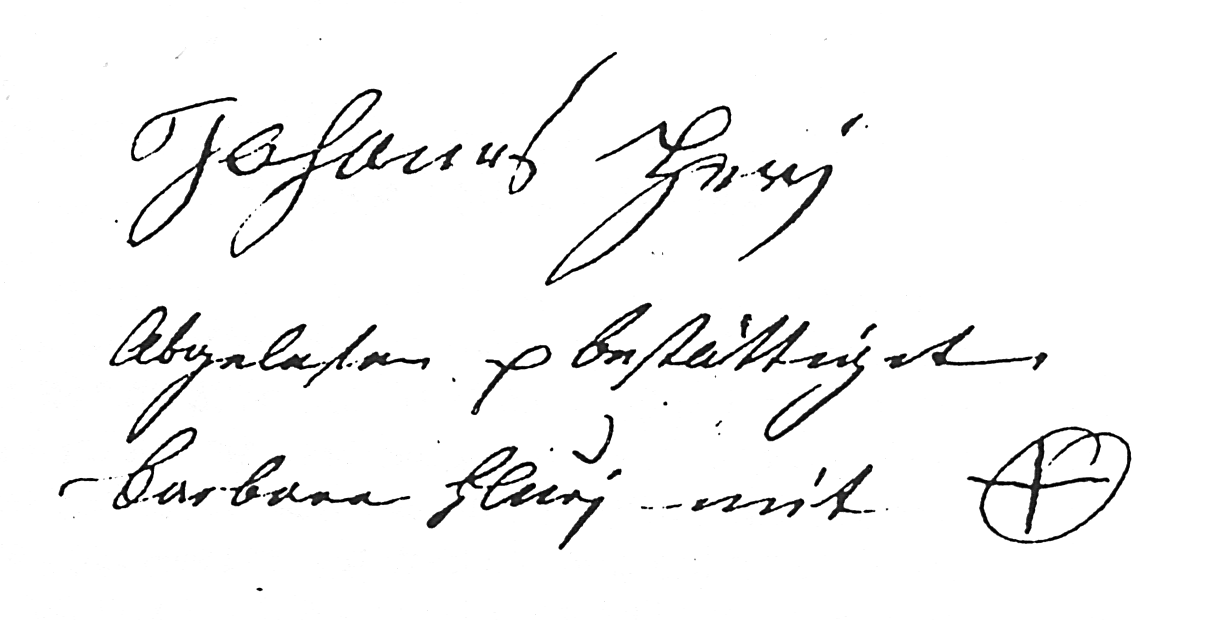 Johanes Herj
Abgelesen & bestättiget.
Barbara Flurj mit